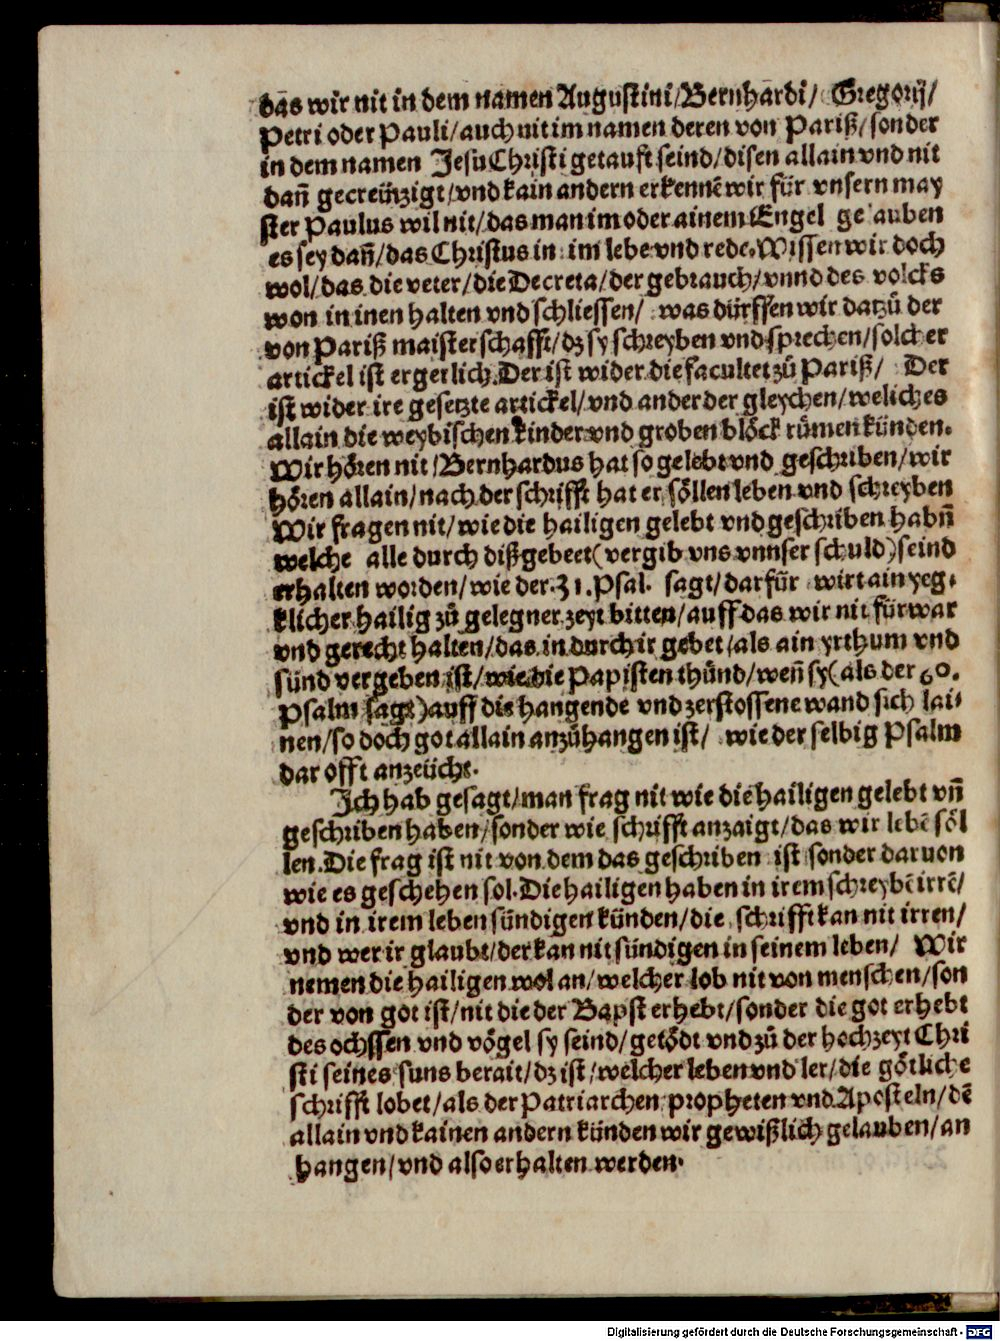 das wir nit in dem namen Augustini/Bernhardi/ Gregorij/
Petri oder Pauli/auch nit im namen deren von Pariß/sonder
in dem namen Jesu Christi getauft seind/disen allain vnd nit
dañ gecreützigt/vnd kain andern erkennẽ wir für vnsern may
ster Paulus wil nit/das man im oder ainem Engel ge auben
es sey dañ/das Christus in im lebe vnd rede. Wissen wir doch
wol/das die veter/die Decreta/der gebrauch/vnnd des volcks
won in inen halten vnd schliessen/ was dürffen wir datzů der
von Pariß maisterschafft/dz sy schreyben vnd sprechen/solcher
artickel ist ergerlich. Der ist wider die facultet zů Pariß/ Der
ist wider ire gesetzte artickel/vnd ander der gleychen/weliches
allain die weybischen kinder vnd groben blöck rümen künden.
Wir hören nit/Bernhardus hat so gelebt vnd geschriben/wir
hören allain/nach der schrifft hat er söllen leben vnd schreyben
Wir fragen nit/wie die hailigen gelebt vnd geschriben habñ
welche alle durch diß gebeet(vergib vns vnnser schuld)seind
erhalten worden/wie der.31.Psal. sagt/darfür wirt ain yeg⸗
klicher hailig zů gelegner zeyt bitten/auff das wir nit für war
vnd gerecht halten/das in durch ir gebet/als ain yrthum vnd
sünd vergeben ist/wie die Papisten thünd/weñ sy(als der 60.
Psalm sagt)auff die hangende vnd zerstossene wand sich lai⸗
nen/so doch got allain anzůhangen ist/ wie der selbig Psalm
dar offt anzeücht.
Ich hab gesagt/man frag nit wie die hailigen gelebt vñ
geschriben haben/sonder wie schrifft anzaigt/das wir lebẽ söl
len. Die frag ist nit von dem das geschriben ist sonder daruon
wie es geschehen sol. Die hailigen haben in irem schreybẽ irrẽ/
vnd in irem leben sündigen künden/die schrifft kan nit irren/
vnd wer ir glaubt/der kan nit sündigen in seinem leben/ Wir
nemen die hailigen wol an/welcher lob nit von menschen/son
der von got ist/nit die der Bapst erhebt/sonder die got erhebt
des ochssen vnd vögel sy seind/getödt vnd zů der hochzeyt Chri
sti seines suns berait/dz ist/welcher leben vnd ler/die götliche
schrifft lobet/als der Patriarchen propheten vnd Aposteln/dẽ
allain vnd kainen andern künden wir gewißlich gelauben/an
hangen/vnd also erhalten werden.
Digitalisierung gefördert durch die Deutsche Forschungsgemeinschaft - DFG